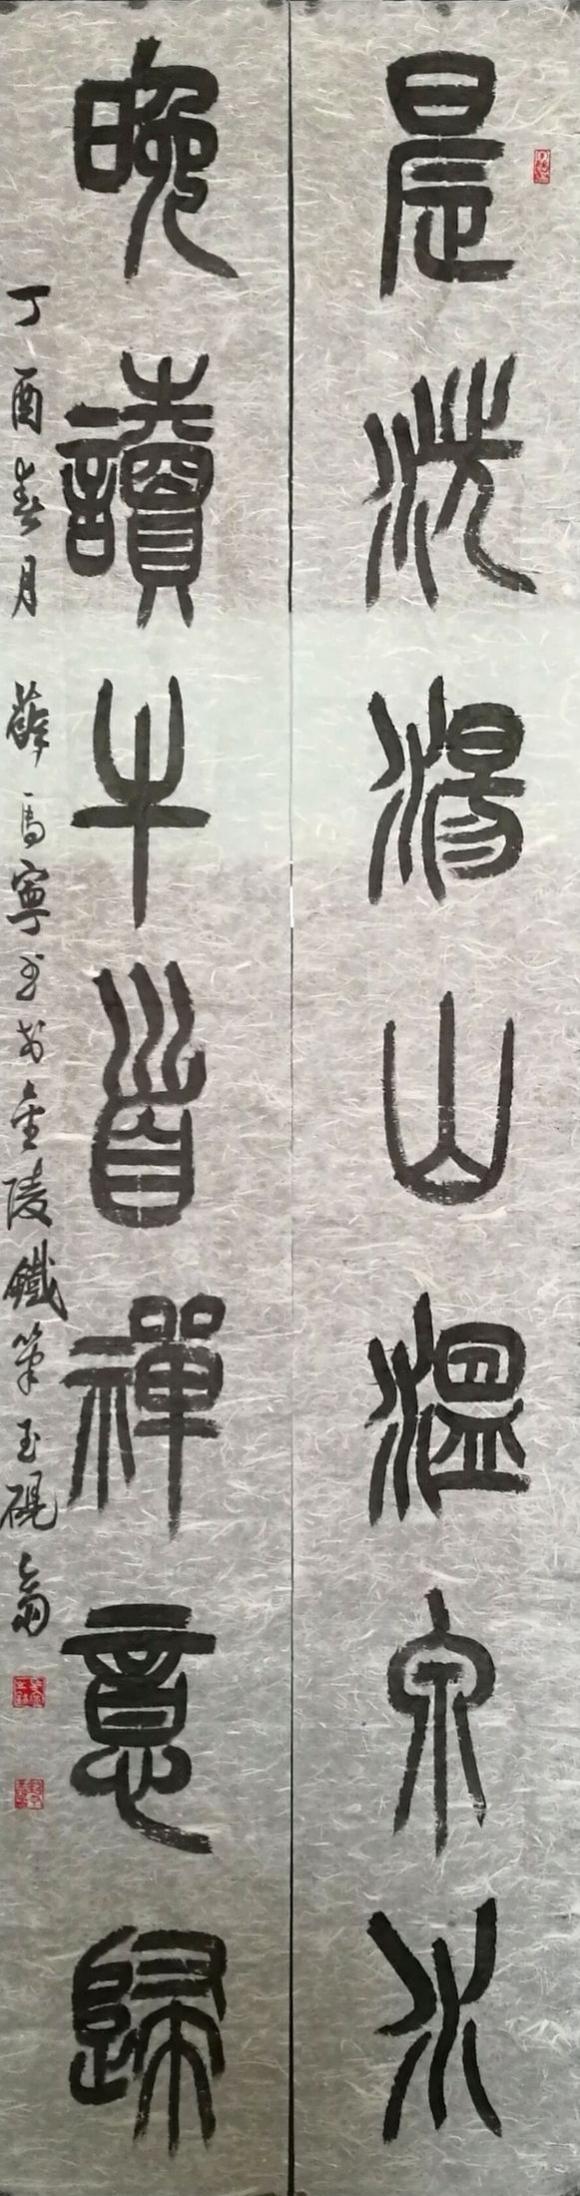 晨洗湯山温泉水
晚讀牛首禪意歸
丁酉春月 薛馬寧书于金陵鐵筆玉硯斋